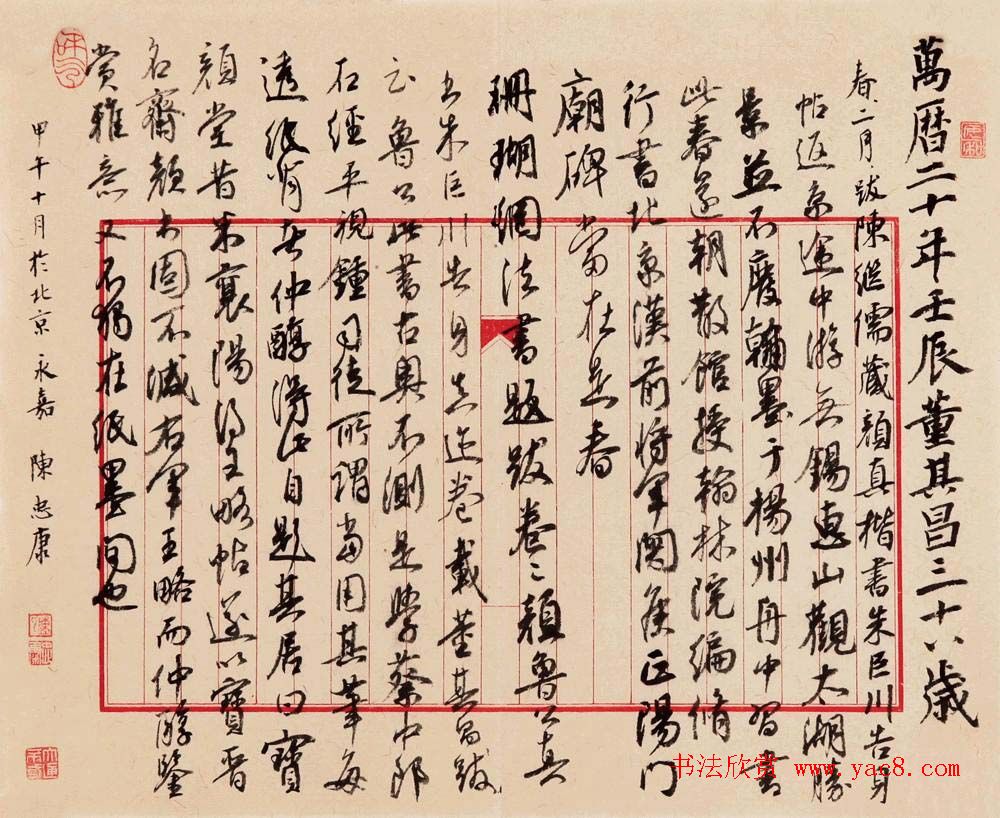 萬曆二十年壬辰董其昌三十八歲
春二月跋陳繼儒藏顏真楷書朱巨川告身
帖返京途中游無錫惠山觀太湖勝
景並不廢翰墨于楊州舟中習書
此春還朝散館授翰林院編脩
行書北京漢前將軍關侯正陽門
廟碑當在是春
珊瑚網法書題跋卷二顏魯公真
書朱巨川告身真迹卷載董其昌跋
云魯公此書古奧不測是學蔡中郎
石經平視鍾司徒所謂當用其筆每
透紙背者仲醇得此自題其居曰寶
顏堂昔米襄陽得王略帖遂以寶晉
名齋顏書固不減右軍王略而仲醇鑒
賞雅意又不獨在紙墨間也
甲午十月於北京永嘉陳忠康
书法欣赏 www.yac8.com